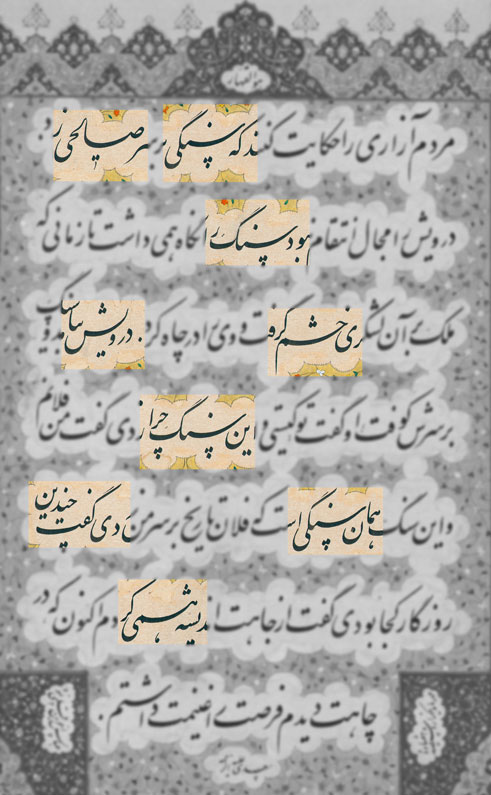 مردم آزاری را حکایت کنند که سنگی بر سر صالحی زد.
درویش را مجال انتقام نبود سنگ را نگاه همی داشت تا زمانی که
ملک را بر آن لشکری خشم گرفت و وی را در چاه کرد. درویش
بر سرش کوفت او گفت تو کیستی و این سنگ چرا زدی گفت من فلانم
و این سنگ همان سنگی است که فلان تاریخ بر سر من زدی گفت چندین
روزگار کجا بودی گفت از جاهت اندیشه همی کردم اکنون که در
چاهت دیدم فرصت را غنیمت داشتم.